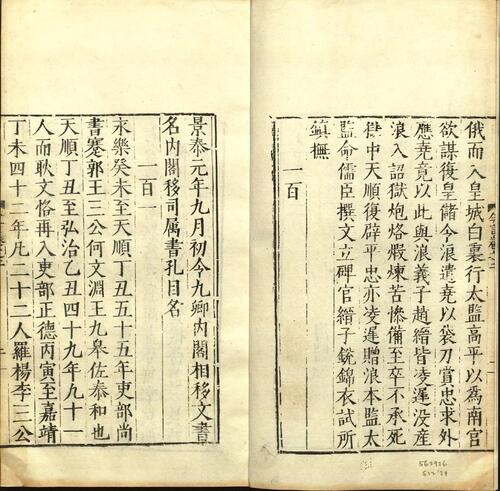 俄而入皇城白裏行太監高平以為南官
欲謀復皇儲令浪遣堯以袋刀賞忠求外
應堯竟以此與浪義子趙縉皆凌遲没産
浪入詔獄炮烙煆煉苦慘備至卒不承死
獄中天順復辟平忠亦凌遲贈浪本監太
監命儒臣撰文立碑官縉子銃錦衣試所
鎮撫
一百
景泰元年九月初令九卿内閣相移文書
名内閣移司属書孔目名
一百
永樂癸未至天順丁丑五十五年吏部尚
書蹇郭王三公何文淵王九皋佐泰和也
天順丁丑至弘治乙丑四十九年九十一
人而耿文恪再入吏部正德丙寅至嘉靖
丁未四十二年凡二十二人羅楊李三公
562926